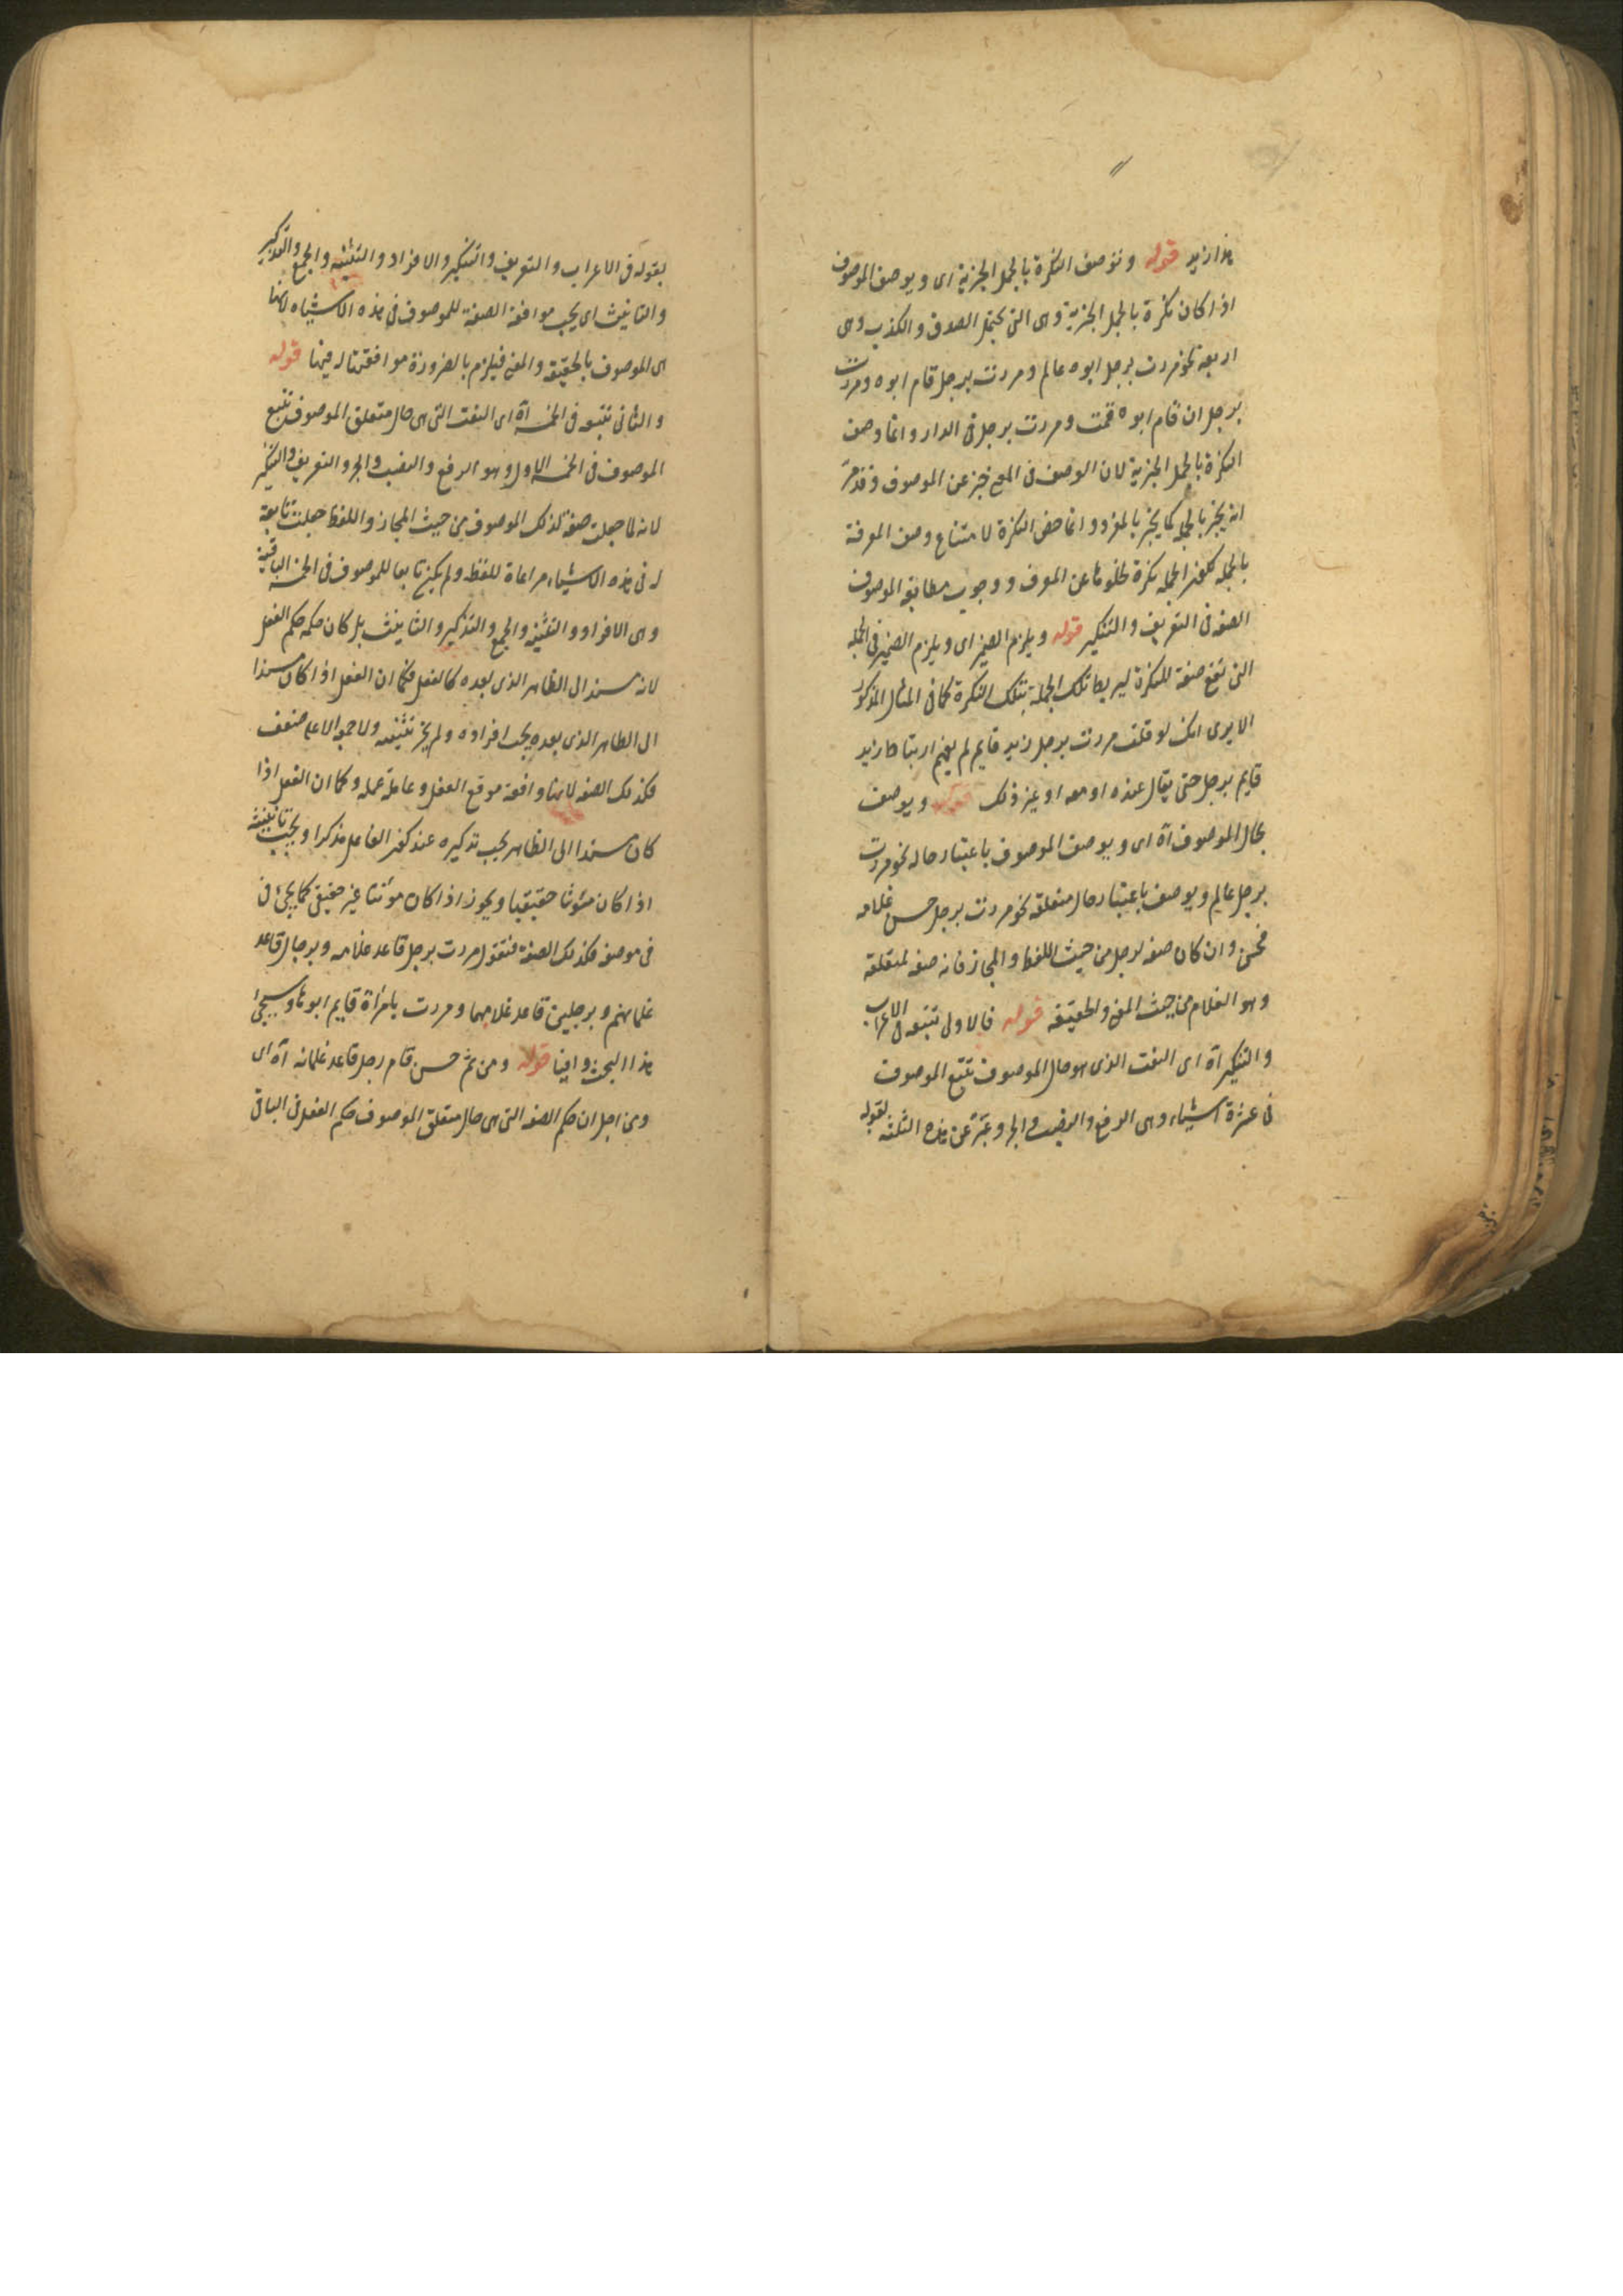 هذا زيد قوله وتوصف النكرة بالجمل الخبرية اى ويوصف الموصوف
اذا كان نكرة بالجمل الخبرية وهى التى تحتمل الصدق والكذب وهى
اربعة نحو مررت برجل ابوه عالم ومررت برجل قام ابوه ومررت
برجل ان قام ابوه قمت ومررت برجل فى الدار وانما وصف
النكرة بالجمل الخبرية لان الوصف فى المعنى خبر عن الموصوف وقد مرّ
انه يخبر بالجملة كما يخبر بالمفرد وانما خص النكرة لامتناع وصف المعرفة
بالجملة لكون الجملة نكرة لخلوها عن المعرف ووجوب مطابقة الموصوف
الصفة فى التعريف والتنكير قوله ويلزم الضمير اى ويلزم الضمير فى الجملة
التى تقع صفة للنكرة ليربط تلك الجملة بتلك النكرة كما فى المثال المذكور
الا يرى انك لو قلت مررت برجل زيد قايم لم يفهم ارتباط زيد
قايم برجل حتى يقال عنده او معه او غير ذلك قوله ويوصف
بحال الموصوف آه اى ويوصف الموصوف باعتبار حاله نحو مررت
برجل عالم ويوصف باعتبار حال متعلقه نحو مررت برجل حسن غلامه
فحسن وان كان صفة لرجل من حيث اللفظ والمجاز فانه صفة لمتعلقه
وهو الغلام من حيث المعنى والحقيقة قوله فالاول تتبعه فى الاعراب
والتنكير آه اى النعت الذى هو حال الموصوف تتبع الموصوف
فى عشرة اشياء وهى الرفع والنصب والجر وعبّر عن هذه الثلثة بقوله
بقوله فى الاعراب والتعريف والتنكير والافراد والتثنية والجمع والتذكير
والتانيث اى يجب موافقة الصفة للموصوف فى هذه الاشياء لانها
هى الموصوف بالحقيقة والمعنى فيلزم بالضرورة موافقتها له فيها قوله
والثانى تتبعه فى الخمسة آه اى النعت التى هى حال متعلق الموصوف تتبع
الموصوف فى الخمسة الاول وهو الرفع والنصب والجر والتعريف والتنكير
لانه لما جعلت صفة لذلك الموصوف من حيث المجاز واللفظ جعلت تابعة
له فى هذه الاشياء مراعاة للفظ ولم يكن تابعا للموصوف فى الخمسة الباقية
وهى الافراد والتثنية والجمع والتذكير والتانيث بل كان حكمه حكم الفعل
لانه مسند الى الظاهر الذى بعده كالفعل فكما ان الفعل اذا كان مسندا
الى الظاهر الذى بعده يجب افراده ولم يجز تثنيته ولا جمعه الا على ضعف
فكذلك الصفة لانها واقعة موقع الفعل وعاملة عمله وكما ان الفعل اذا
كان مسندا الى الظاهر يجب تذكيره عند كون الفاعل مذكرا ويجب تانيثه
اذا كان مئونثا حقيقيا ويجوز اذا كان مؤنثا غير حقيقى كما يجئ فى
فى موضعه فكذلك الصفة فتقول مررت برجل قاعد غلامه وبرجال قاعد
غلمانهم وبرجلين قاعد غلامهما ومررت بامرأة قايم ابوها وسيجئ
هذا البحث وافيا قوله ومن ثم حسن قام رجل قاعد غلمانه آه اى
ومن اجل ان حكم الصفة التى هى حال متعلق الموصوف حكم الفعل فى الباقى